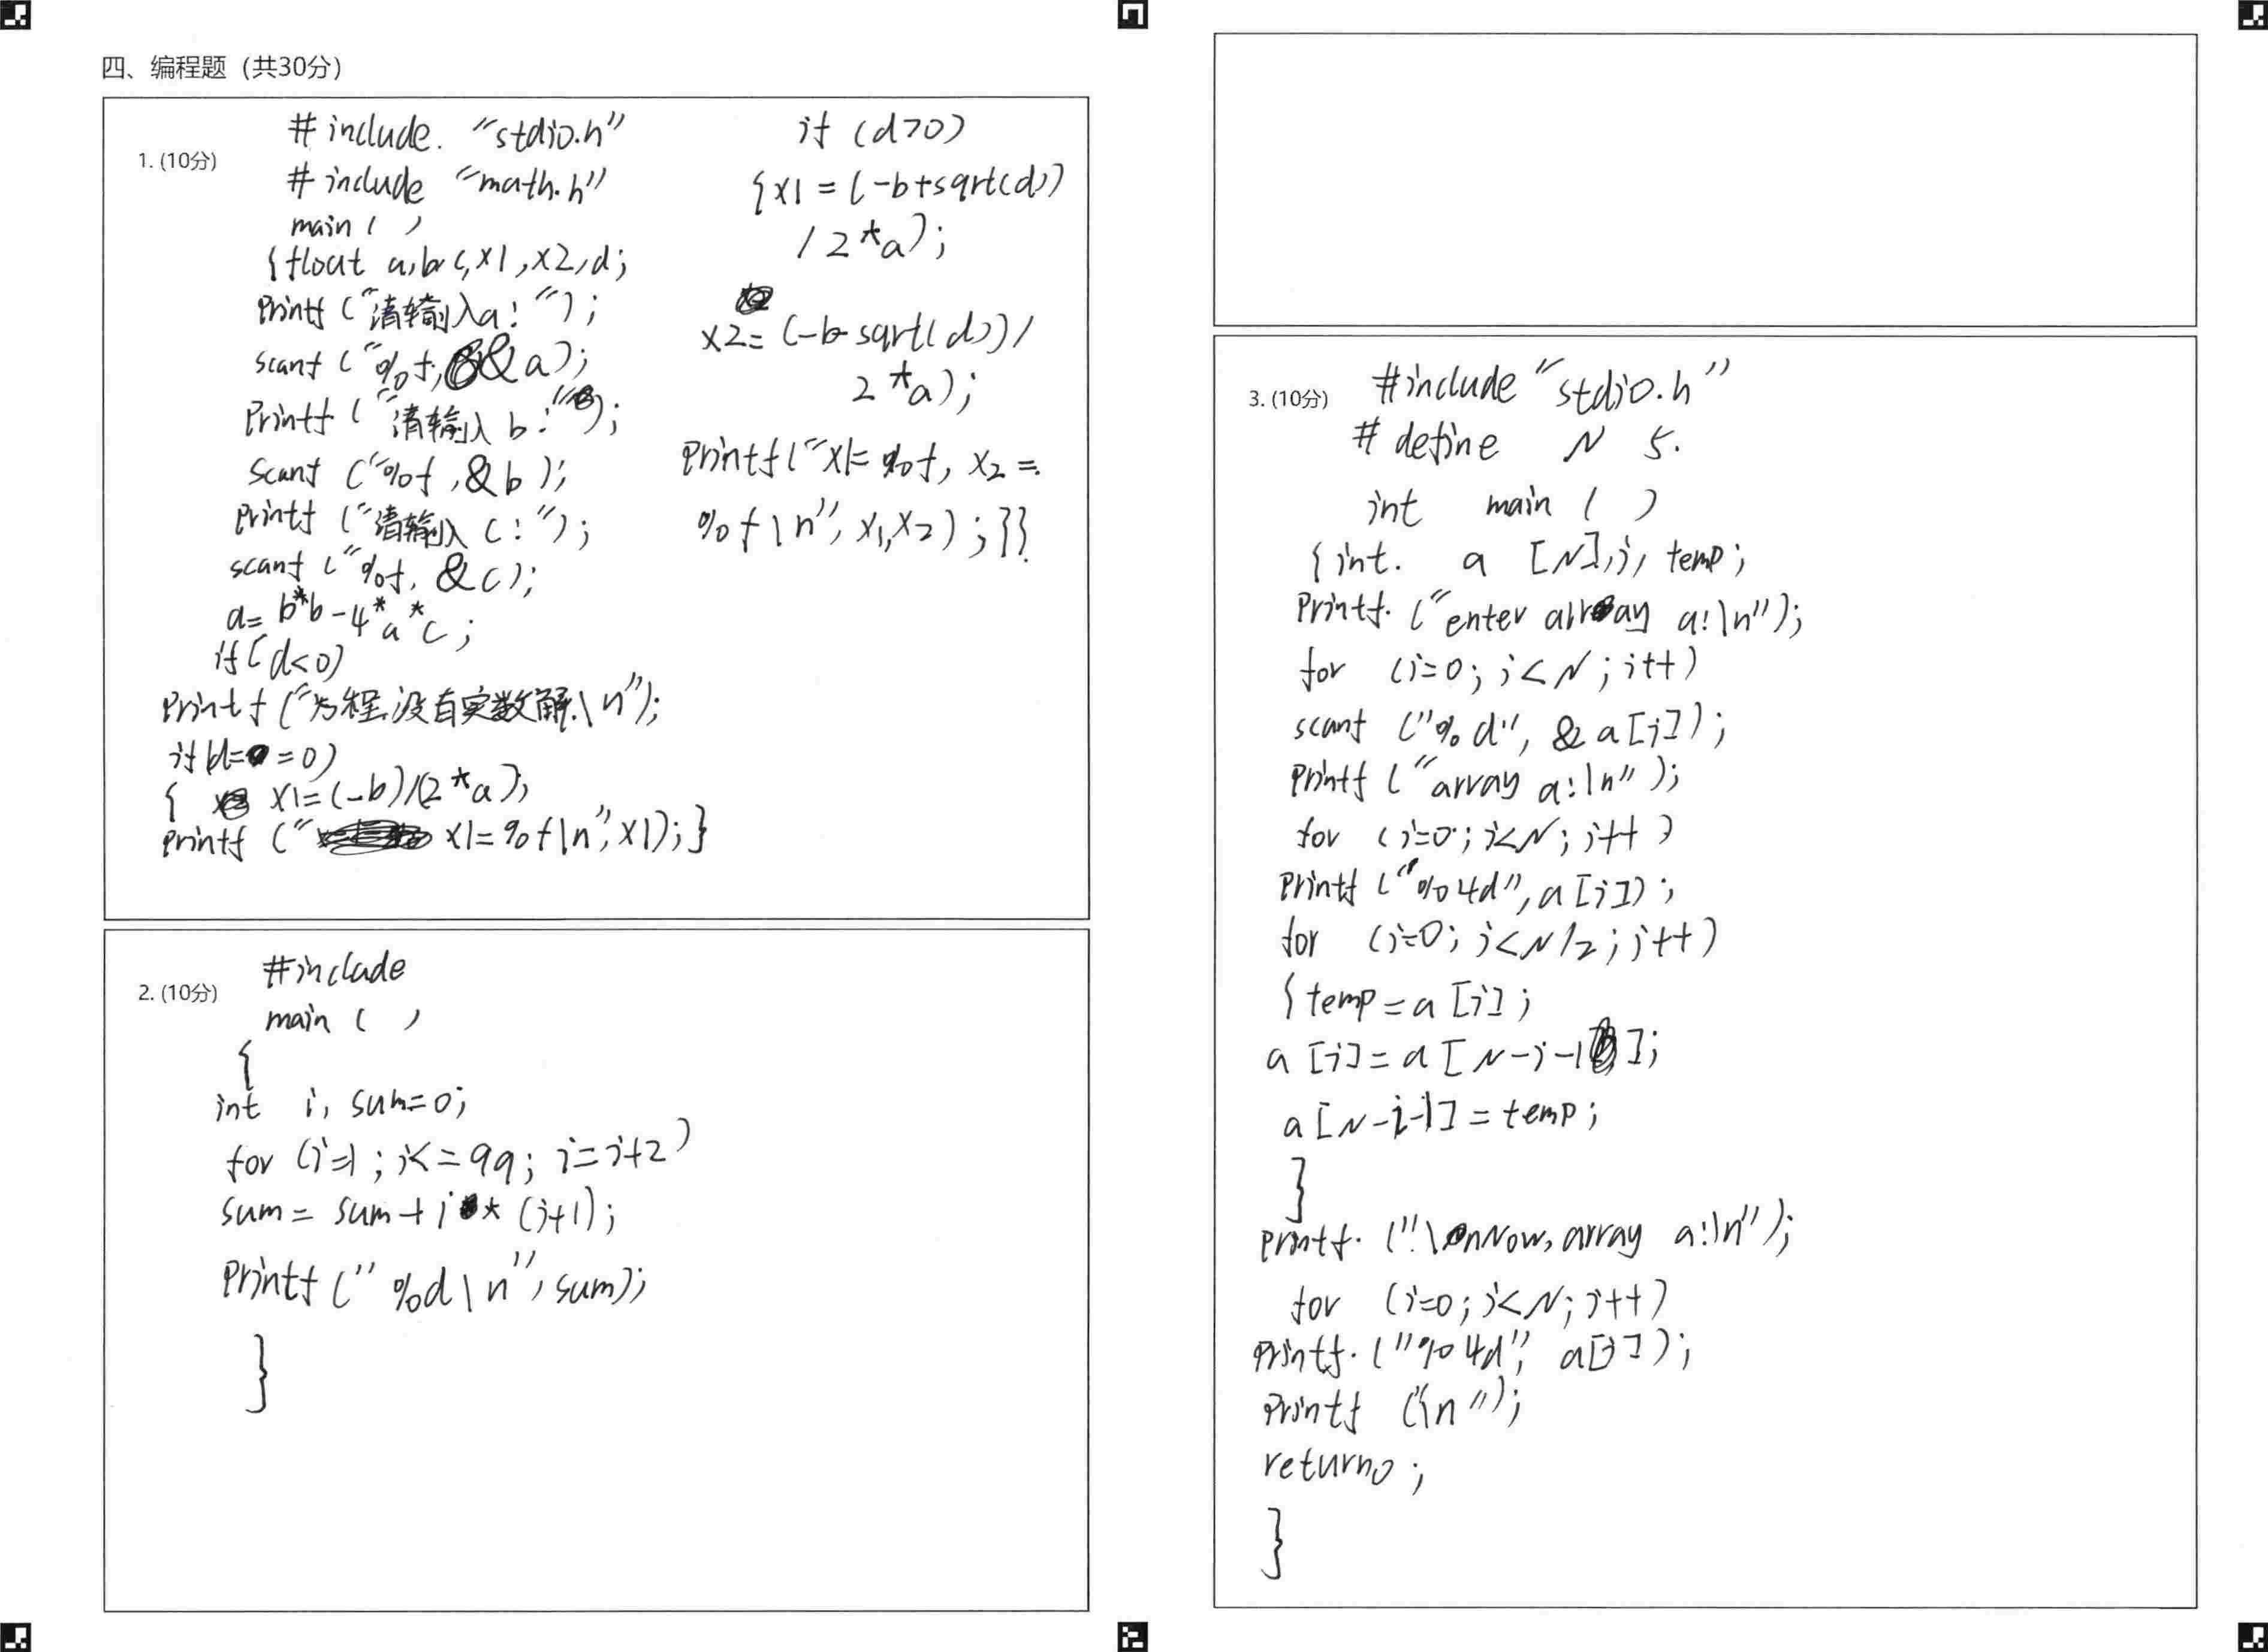 四、编程题（共30分）
1. (10分)
#include. "stdio.h"
#include "math.h"
main ( )
{float a,b,c,x1,x2,d;
printf ("请输入a: ");
scanf ("%f, &a);
printf ("请输入b:");
scanf ("%f ,&b );
printf ("请输入 c: ");
scanf ("%f, &c);
d= b*b-4*a*c;
if(d<0)
printf ("方程没有实数解.\n");
if(d==0)
{ x1=(-b)/(2*a);
printf (" x1=%f\n",x1);}
if (d>0)
{x1=(-b+sqrt(d))
/2*a);
x2=(-b-sqrt(d))/
2*a);
printf("x1=%f, x2=
%f\n", x1,x2);}}
2. (10分)
#include
main ( )
{
int i, sum=0;
for (i=1; i<=99; i=i+2)
sum= sum+i * (i+1);
printf (" %d\n", sum);
}
3. (10分)
#include "stdio.h"
#define N 5.
int main ( )
{int. a [N],i, temp;
printf. ("enter array a:\n");
for (i=0; i<N; i++)
scanf ("%d", & a[i]);
printf ("array a:\n" );
for (i=0; i<N; i++ )
printf ("%4d", a[i]);
for (i=0; i<N/2; i++)
{temp=a [i];
a [i]=a [N-i-1];
a[N-i-1]=temp;
}
printf. ("\nNow, array a:\n");
for (i=0; i<N; i++)
printf. ("%4d", a[i]);
printf ("\n");
return0;
}